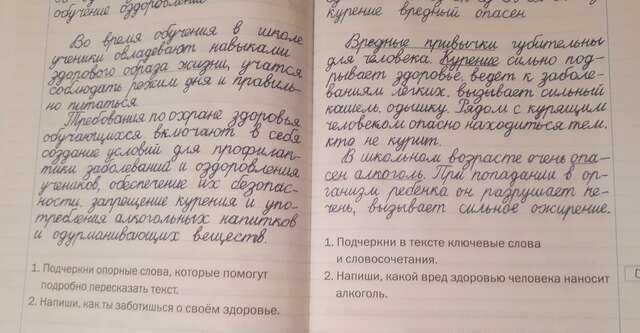 обучение оздоровлени
Во время обучения в школе
ученики овладевают навыками
здорового образа жизни, учатся
соблюдать режим дня и правиль-
но питаться.
Требования по охране здоровья
обучающихся включают в себя
создание условий для профилак-
тики заболеваний и оздоровления
учеников, обеспечение их безопас-
ности, запрещение курения и упо-
требления алкогольных напитков
и одурманивающих веществ.
1. Подчеркни опорные слова, которые помогут
подробно пересказать текст.
2. Напиши, как ты заботишься о своём здоровье.
курение вредный опасен
Вредные привычки губительны
для человека. Курение сильно под-
рывает здоровье, ведёт к заболе-
ваниям лёгких, вызывает сильный
кашель, одышку. Рядом с курящим
человеком опасно находиться тем,
кто не курит.
В школьном возрасте очень опа-
сен алкоголь. При попадании в ор-
ганизм ребёнка он разрушает пе-
чень, вызывает сильное ожирение.
1. Подчеркни в тексте ключевые слова
и словосочетания.
2. Напиши, какой вред здоровью человека наносит
алкоголь.